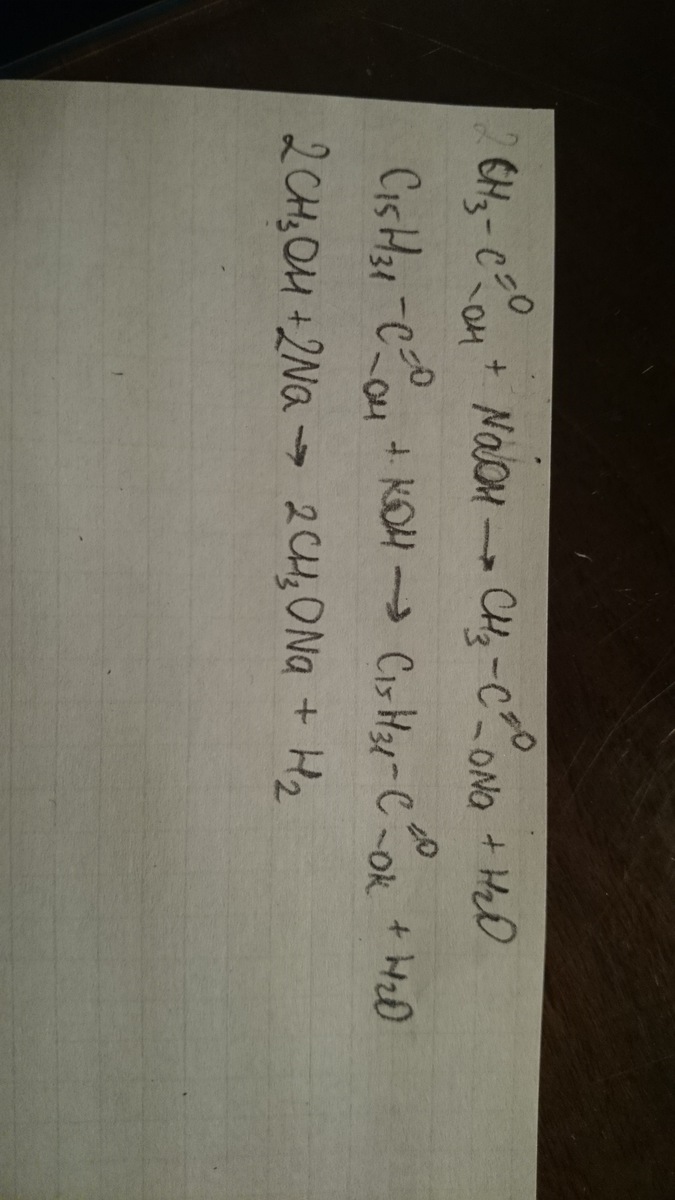 2CH₃-C(=O)-OH + NaOH → CH₃-C(=O)-ONa + H₂O
C₁₅H₃₁-C(=O)-OH + KOH → C₁₅H₃₁-C(=O)-OK + H₂O
2CH₃OH + 2Na → 2CH₃ONa + H₂